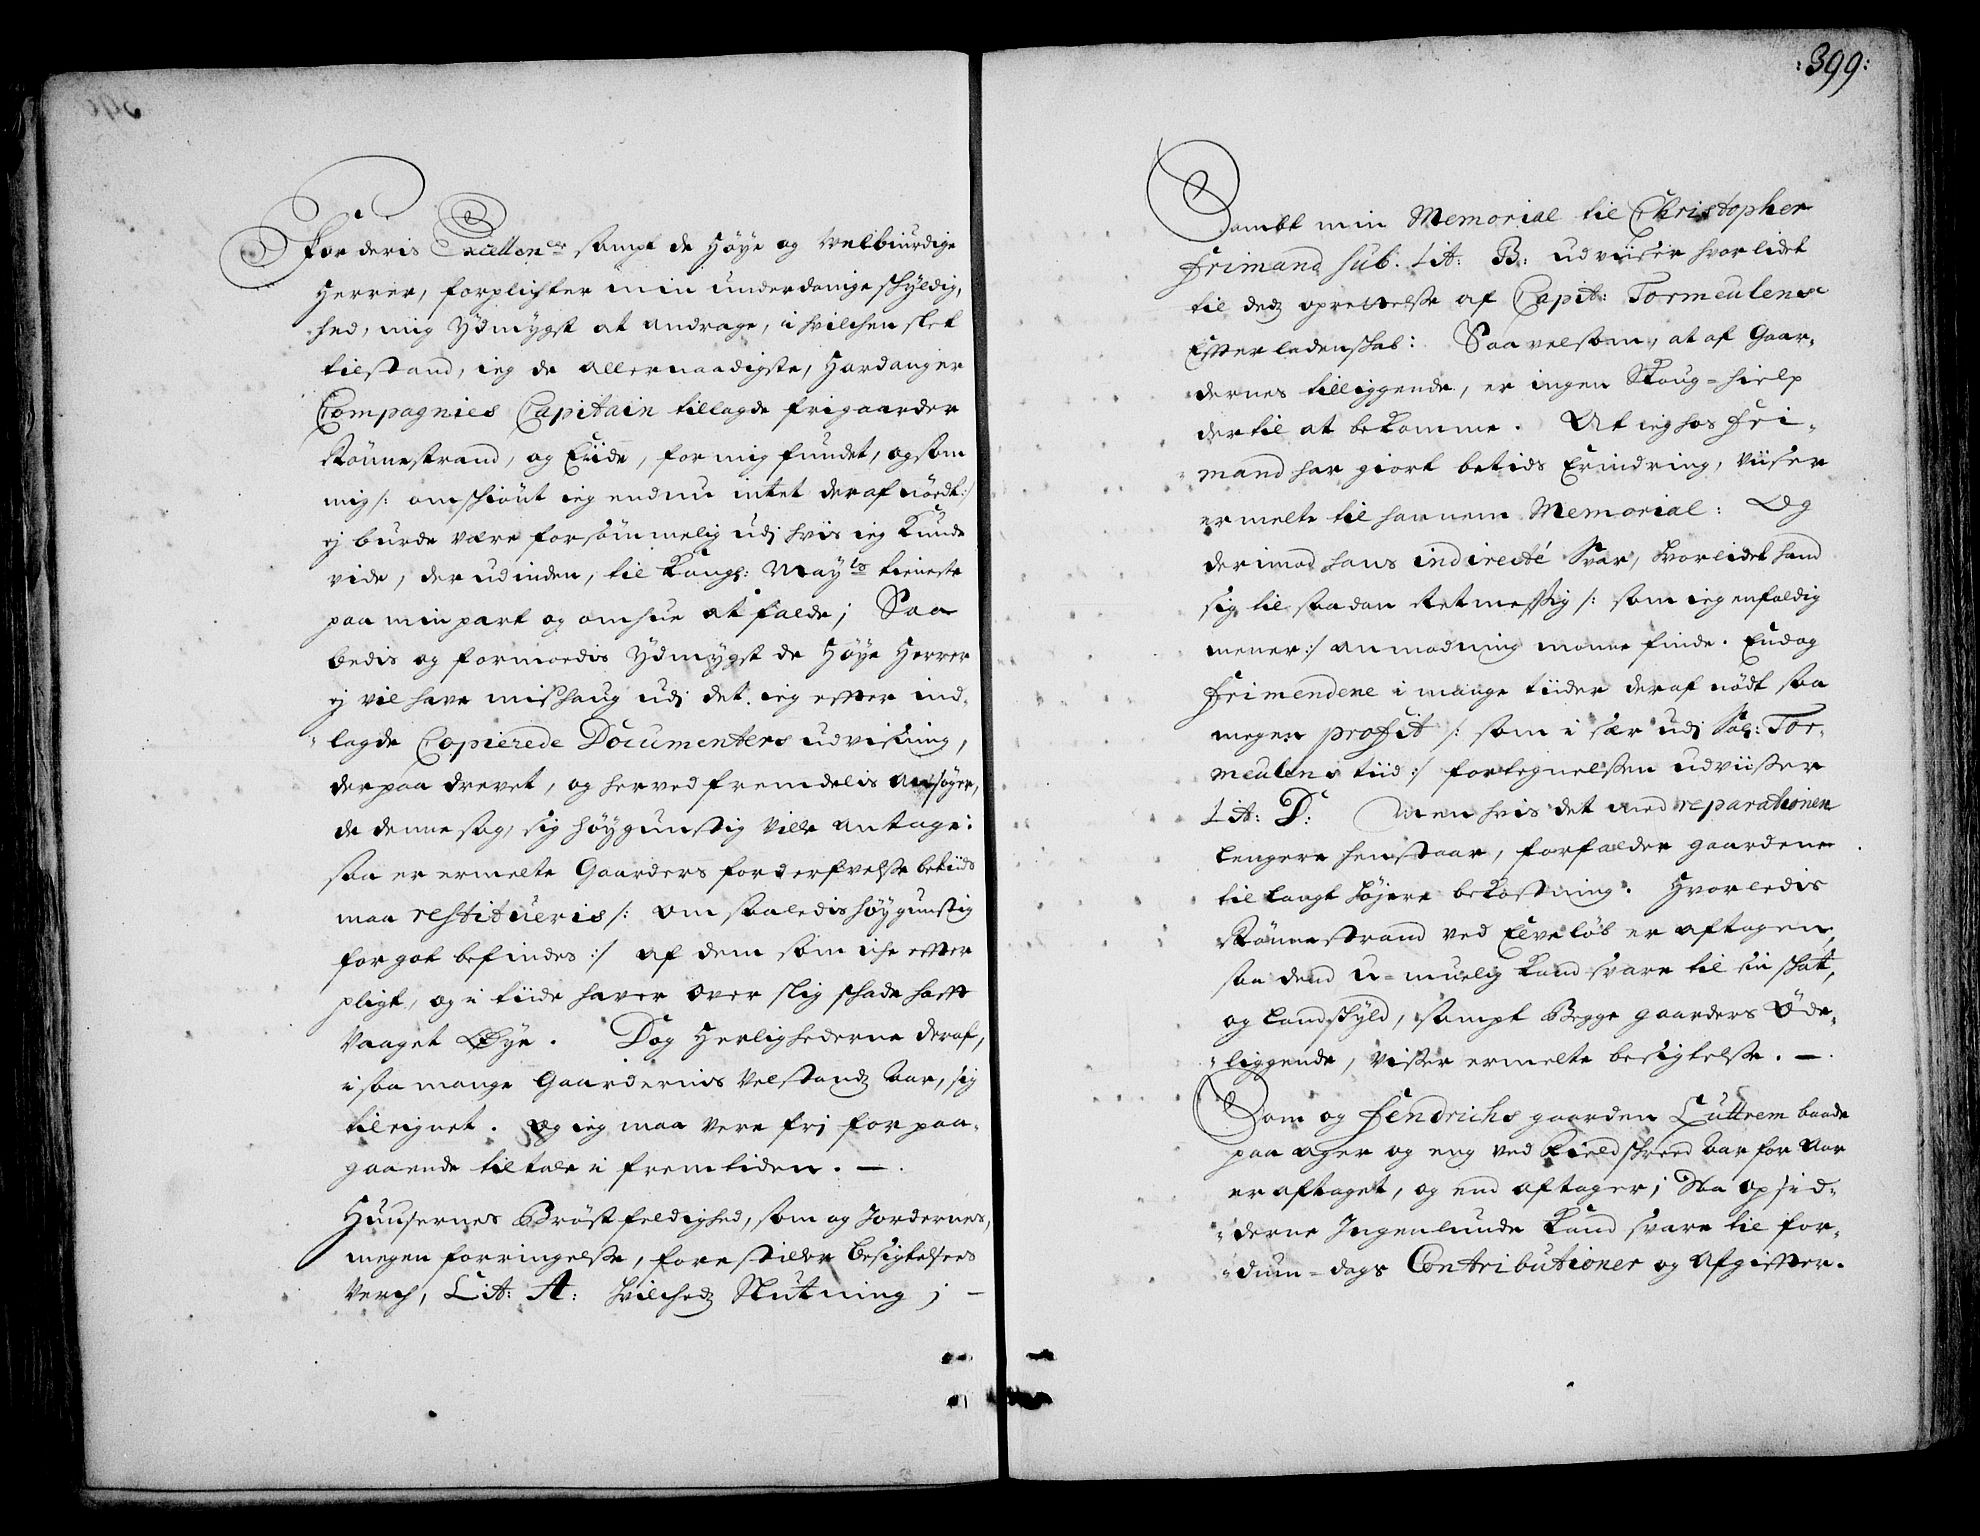 For deris Excellencer sampt de Høye og Velbiurdige
Herrer, forplichter min underdanige schyldig,
hed, mig ydmygst at andrage, i hvilchen slet
tilstand, ieg de allernaadigste, Hardanger
Compagnies Capitain tillagde frigaarder
Rønnestrand, og Eide, for mig fundet, og som
mig /: omschiønt ieg endnu intet deraf nødt :/
ej burde være forsømmelig udj hvis ieg Kunde
vide, der udinden, til Kongl: Mayts tieneste
paa min part og omhue at falde; Saa
bedis og formoedis ydmygst de Høye Herrer
ej vil have mishaug udj det ieg efter ind-
lagde Copierede Documenters udvisning,
derpaa drevet, og herved fremdelis ansøger,
de denne sag, sig høygunstig ville antage:
saa er ermelte Gaarders forderfvelsse betids
maa restitueris /: om saaledis høygunstig
for got befindes :/ af dem som iche efter
pligt, og i tiide haver over slig schade hafft
vaaget Øye. Dog Herlighederne deraf,
i saa mange Gaardernis velstandz aar, sig
tilegnet. Og ieg maa vere frj for paa-
gaaende tiltale i fremtiden. —.
Huusernes Brøstfeldighed, som og Jordernes,
megen forringelsse, forestiller besigtelsens
verch, Lit: A: hvilchedz Slutning; —
:399:
Samt min Memorial til Christopher
Frimand sub. Lit: B: udviiser hvor lidet
til dedz oprettelsse af Capit: Tormeulens
Efterladenskab: Saavelsom, at af Gaar-
dernes tilliggende, er ingen Skoug-hielp
dertil at bekomme. At ieg hos Fri-
mand har giort betids Erindring, viiser
ermelte til hannem Memorial: Og
derimod hans indirecté Svar, hvorlidet hand
sig til saadan Retmessig /: som ieg enfoldig
mener :/ anmodning monne finde. Endog
Frimendene i mange tiider deraf nødt saa
megen profit /: som i sær udj Sal: Tor-
meulens tiid :/ fortegnelssen udviisser
Lit: D: Men hvis det med reparationen
lengere henstaar, forfalder gaardene
til langt højere bekostning. Hvorledis
Rønnestrand ved Elveløb er aftagen,
saa dend u-muelig kand svare til sin schat,
og Landschyld, sampt begge gaarders Øde-
liggende, visser ermelte besigtelsse. —.
Som og Fendrichs gaarden Luttrem baade
paa ager og eng ved Field schreed aar for aar
er aftaget, og end aftager; Saa opsid-
derne Ingenlunde kand svare til for-
dum-dags Contributioner og afgifter.